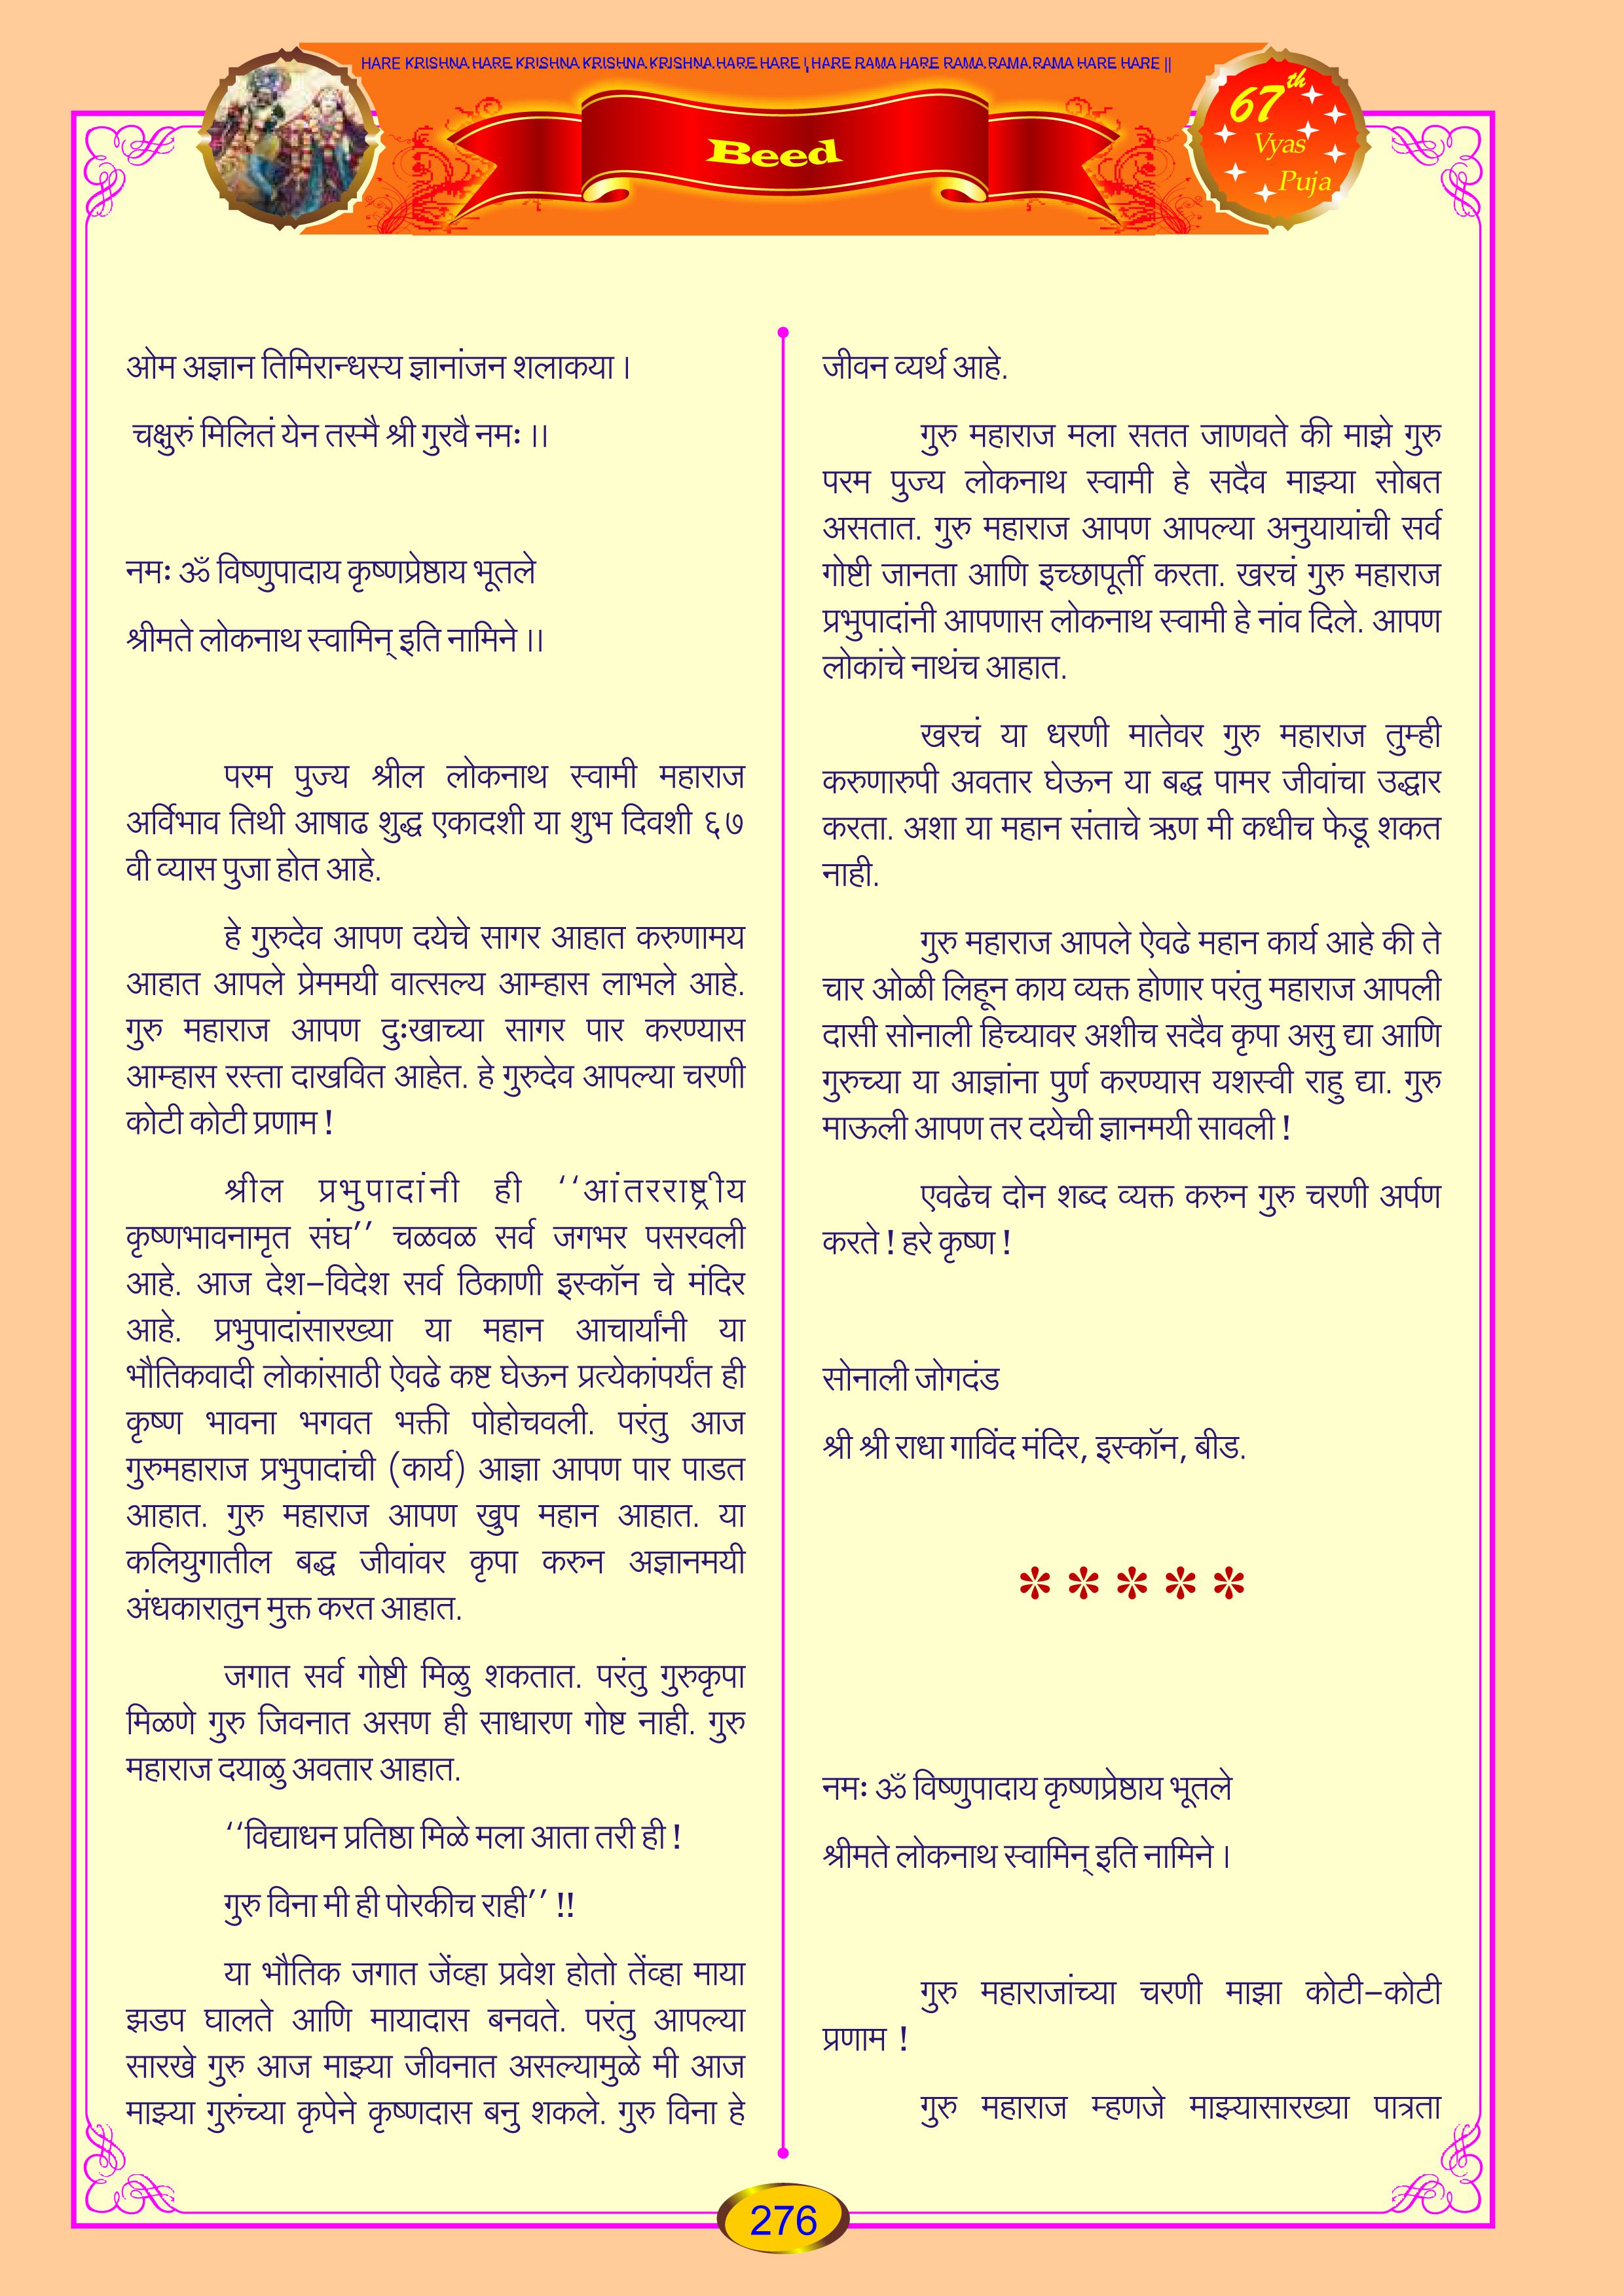 HARE KRISHNA HARE KRISHNA KRISHNA KRISHNA HARE HARE | HARE RAMA HARE RAMA RAMA RAMA HARE HARE ||
Beed
67th
Vyas
Puja
ओम अज्ञान तिमिरान्धस्य ज्ञानांजन शलाकया ।
चक्षुरुं मिलितं येन तस्मै श्री गुरवै नमः ।।
नमः ॐ विष्णुपादाय कृष्णप्रेष्ठाय भूतले
श्रीमते लोकनाथ स्वामिन् इति नामिने ।।
परम पुज्य श्रील लोकनाथ स्वामी महाराज
अर्विभाव तिथी आषाढ शुद्ध एकादशी या शुभ दिवशी ६७
वी व्यास पुजा होत आहे.
हे गुरुदेव आपण दयेचे सागर आहात करुणामय
आहात आपले प्रेममयी वात्सल्य आम्हास लाभले आहे.
गुरु महाराज आपण दुःखाच्या सागर पार करण्यास
आम्हास रस्ता दाखवित आहेत. हे गुरुदेव आपल्या चरणी
कोटी कोटी प्रणाम !
श्रील प्रभुपादांनी ही ‘‘आंतरराष्ट्रीय
कृष्णभावनामृत संघ’’ चळवळ सर्व जगभर पसरवली
आहे. आज देश–विदेश सर्व ठिकाणी इस्कॉन चे मंदिर
आहे. प्रभुपादांसारख्या या महान आचार्यांनी या
भौतिकवादी लोकांसाठी ऐवढे कष्ट घेऊन प्रत्येकांपर्यंत ही
कृष्ण भावना भगवत भक्ती पोहोचवली. परंतु आज
गुरुमहाराज प्रभुपादांची (कार्य) आज्ञा आपण पार पाडत
आहात. गुरु महाराज आपण खुप महान आहात. या
कलियुगातील बद्ध जीवांवर कृपा करुन अज्ञानमयी
अंधकारातुन मुक्त करत आहात.
जगात सर्व गोष्टी मिळु शकतात. परंतु गुरुकृपा
मिळणे गुरु जिवनात असण ही साधारण गोष्ट नाही. गुरु
महाराज दयाळु अवतार आहात.
‘‘विद्याधन प्रतिष्ठा मिळे मला आता तरी ही !
गुरु विना मी ही पोरकीच राही’’ !!
या भौतिक जगात जेंव्हा प्रवेश होतो तेंव्हा माया
झडप घालते आणि मायादास बनवते. परंतु आपल्या
सारखे गुरु आज माझ्या जीवनात असल्यामुळे मी आज
माझ्या गुरुंच्या कृपेने कृष्णदास बनु शकले. गुरु विना हे
जीवन व्यर्थ आहे.
गुरु महाराज मला सतत जाणवते की माझे गुरु
परम पुज्य लोकनाथ स्वामी हे सदैव माझ्या सोबत
असतात. गुरु महाराज आपण आपल्या अनुयायांची सर्व
गोष्टी जानता आणि इच्छापूर्ती करता. खरचं गुरु महाराज
प्रभुपादांनी आपणास लोकनाथ स्वामी हे नांव दिले. आपण
लोकांचे नाथंच आहात.
खरचं या धरणी मातेवर गुरु महाराज तुम्ही
करुणारुपी अवतार घेऊन या बद्ध पामर जीवांचा उद्धार
करता. अशा या महान संताचे ऋण मी कधीच फेडू शकत
नाही.
गुरु महाराज आपले ऐवढे महान कार्य आहे की ते
चार ओळी लिहून काय व्यक्त होणार परंतु महाराज आपली
दासी सोनाली हिच्यावर अशीच सदैव कृपा असु द्या आणि
गुरुच्या या आज्ञांना पुर्ण करण्यास यशस्वी राहु द्या. गुरु
माऊली आपण तर दयेची ज्ञानमयी सावली !
एवढेच दोन शब्द व्यक्त करुन गुरु चरणी अर्पण
करते ! हरे कृष्ण !
सोनाली जोगदंड
श्री श्री राधा गाविंद मंदिर, इस्कॉन, बीड.
✽ ✽ ✽ ✽ ✽
नमः ॐ विष्णुपादाय कृष्णप्रेष्ठाय भूतले
श्रीमते लोकनाथ स्वामिन् इति नामिने ।
गुरु महाराजांच्या चरणी माझा कोटी–कोटी
प्रणाम !
गुरु महाराज म्हणजे माझ्यासारख्या पात्रता
276